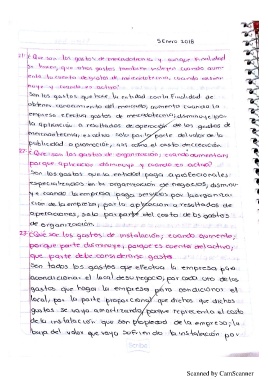 5 Enero 2018
21 ¿Que son los gastos de mercadotecnia y aunque finalidad
se hacen, que otros gastos también incluyen, cuando aumen-
ta la cuenta de gastos de mercadotecnia, cuando dismi-
nuye y cuando es activo?
Son los gastos que hace la entidad con la finalidad de
obtener conocimiento del mercado, aumenta cuando la
empresa efectua gastos de mercadotecnia, disminuye por
la aplicación a resultados de operación de los gastos de
mercadotecnia, es activo solo por la parte del valor de la
publicidad o promoción, más como el costo de
22 ¿Que son los gastos de organización, cuando aumentan,
porque disminuye y cuando es activo?
Son los gastos que la entidad paga a profesionales
especializados en la organización de negocios, disminu-
ye cuando la empresa paga servicios por la organiza-
ción de la empresa, por la aplicación a resultados de
operaciones, solo por parte del costo de los gastos
de organización.
23 ¿Que son los gastos de instalación, cuando aumenta,
porque parte disminuye, porque es cuenta del activo,
que parte debe considerarse gasto?
Son todos los gastos que efectua la empresa para
acondicionar el local de su negocio, por cada uno de los
gastos que haga la empresa para condicionar el
local, por la parte proporcional que dichos que dichos
gastos se vaya amortizando, porque representa el costo
de la instalación que son propiedad de la empresa; la
baja del valor que vaya sufriendo la instalación por
Scribe
Scanned by CamScanner